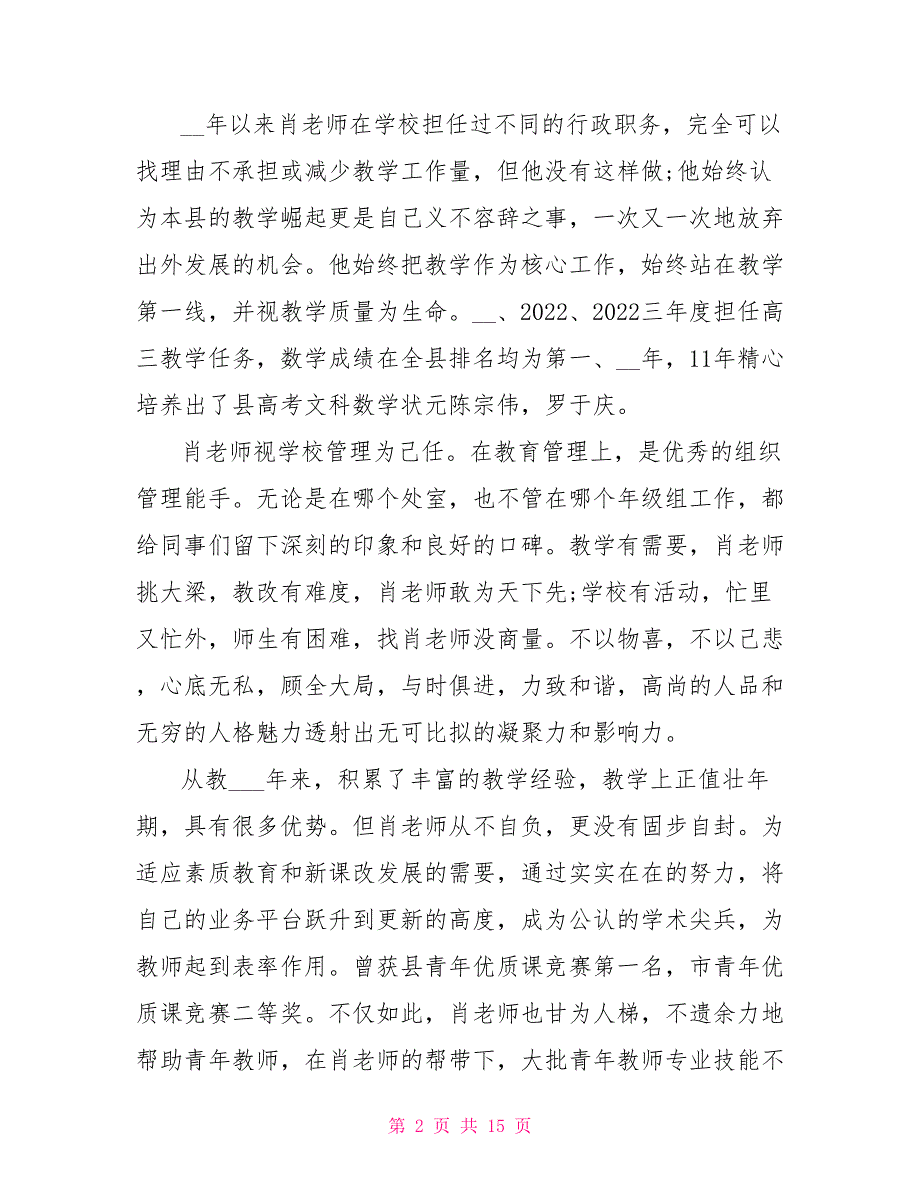 __年以来肖老师在学校担任过不同的行政职务，完全可以
找理由不承担或减少教学工作量，但他没有这样做;他始终认
为本县的教学崛起更是自己义不容辞之事，一次又一次地放弃
出外发展的机会。他始终把教学作为核心工作，始终站在教学
第一线，并视教学质量为生命。__、2022、2022三年度担任高
三教学任务，数学成绩在全县排名均为第一、__年，11年精心
培养出了县高考文科数学状元陈宗伟，罗于庆。
肖老师视学校管理为己任。在教育管理上，是优秀的组织
管理能手。无论是在哪个处室，也不管在哪个年级组工作，都
给同事们留下深刻的印象和良好的口碑。教学有需要，肖老师
挑大梁，教改有难度，肖老师敢为天下先;学校有活动，忙里
又忙外，师生有困难，找肖老师没商量。不以物喜，不以己悲
，心底无私，顾全大局，与时俱进，力致和谐，高尚的人品和
无穷的人格魅力透射出无可比拟的凝聚力和影响力。
从教___年来，积累了丰富的教学经验，教学上正值壮年
期，具有很多优势。但肖老师从不自负，更没有固步自封。为
适应素质教育和新课改发展的需要，通过实实在在的努力，将
自己的业务平台跃升到更新的高度，成为公认的学术尖兵，为
教师起到表率作用。曾获县青年优质课竞赛第一名，市青年优
质课竞赛二等奖。不仅如此，肖老师也甘为人梯，不遗余力地
帮助青年教师，在肖老师的帮带下，大批青年教师专业技能不
第 2 页 共 15 页